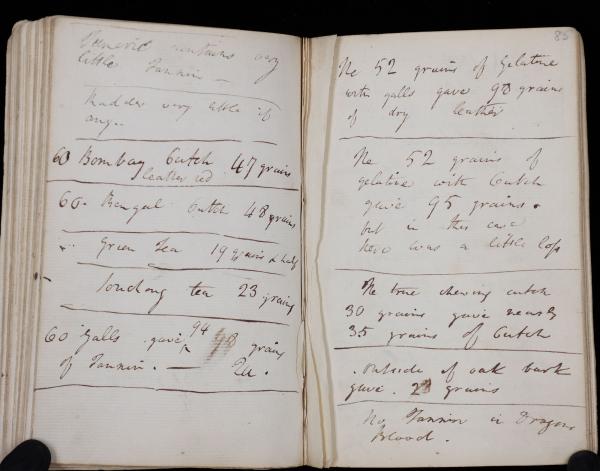 contains very
little Tannin —
Madder very little if
any..
60 Bombay Cutch 47 grains
leather red
60. Bengal Cutch 48 grains
".. Green Tea 19 grains & half
Souchong tea 23 grains
60 Galls gave 94 grains
of Tannin. — Qu.
85
The 52 grains of Gelatine
with galls gave 90 grains
of dry leather
The 52 grains of
gelatine with Cutch
gave 95 grains.
but in this case
there was a little loss
The true chewing cutch
30 grains gave nearly
35 grains of Cutch
. outside of oak bark
gave . 23 grains
No Tannin in Dragons
Blood .